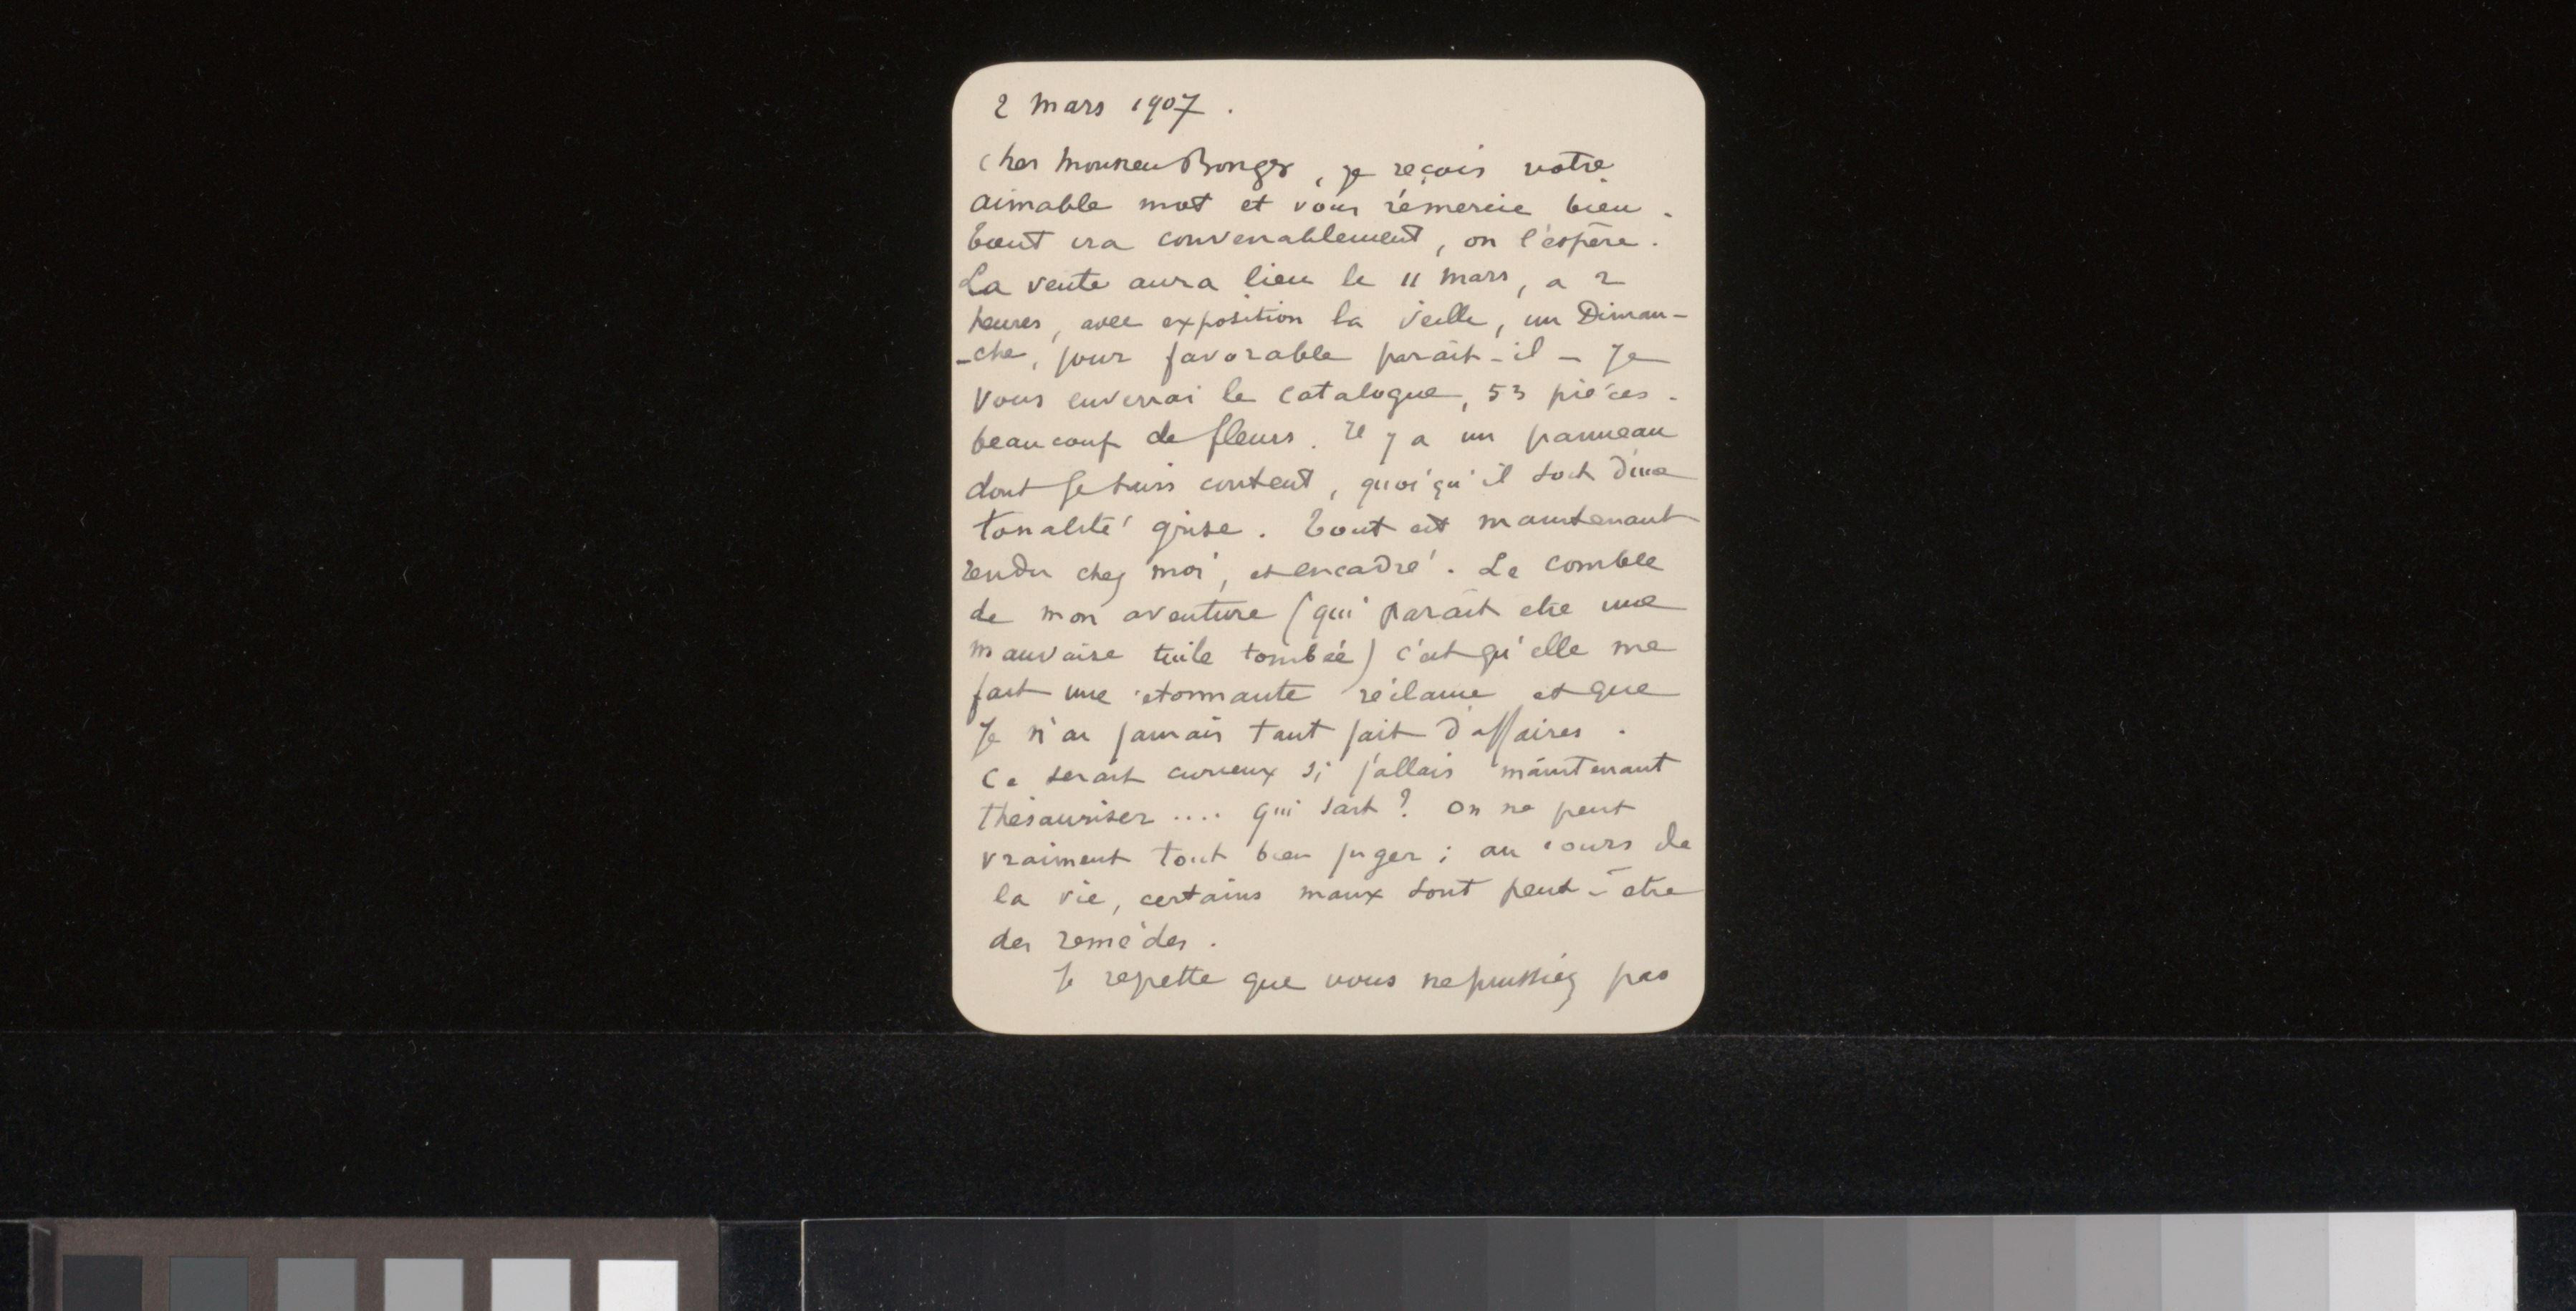 2 Mars 1907.
Cher Monsieur Bonger, je reçois votre
aimable mot et vous rémercie bien.
tout ira convenablement, on l'espère.
La vente aura lieu le 11 Mars, a 2
heures, avec exposition la veille, un Diman-
-che, jour favorable parait-il - Je
vous enverrai le catalogue, 53 pièces.
beaucoup de fleurs. Il y a un panneau
dont je suis content, quoi qu'il soit d'une
tonalité grise. Tout est maintenant
rendu chez moi, et encadré. Le comble
de mon aventure (qui parait etre une
mauvaise tuile tombée) c'est qu'elle me
fait une étonnante réclame et que
Je n'ai jamais tant fait d'affaires.
Ce serait curieux si j'allais maintenant
thésauriser .... qui sait ? On ne peut
vraiment tout bien juger ; au cours de
la vie, certains maux sont peut-être
des remèdes.
Je regrette que vous ne puissiez pas